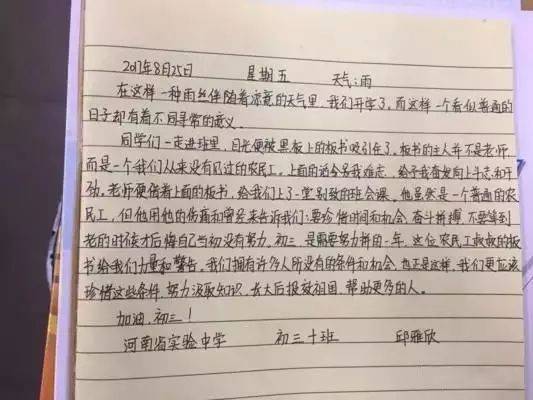 2017年8月25日 星期五 天气:雨
在这样一种雨丝伴随着凉意的天气里,我们开学了。而这样一个看似普通的
日子却有着不同寻常的意义。
同学们一走进班里,目光便被黑板上的板书吸引住了。板书的主人并不是老师,
而是一个我们从来没有见过的农民工。上面的话令我难忘,给予我奋发向上斗志和干
劲。老师便借着上面的板书,给我们上了一堂别致的班会课。他虽然是一个普通的农
民工,但他用他的伤痛和曾经来告诉我们:要珍惜时间和机会,奋斗拼搏,不要等到
老的时候才后悔自己当初没有努力。初三是需要努力拼的一年,这位农民工叔叔的板
书给我们力量和警告。我们拥有许多人所没有的条件和机会,也正是这样,我们更应该
珍惜这些条件,努力汲取知识,长大后报效祖国,帮助更多的人。
加油,初三!
河南省实验中学 初三十班 邱雅欣